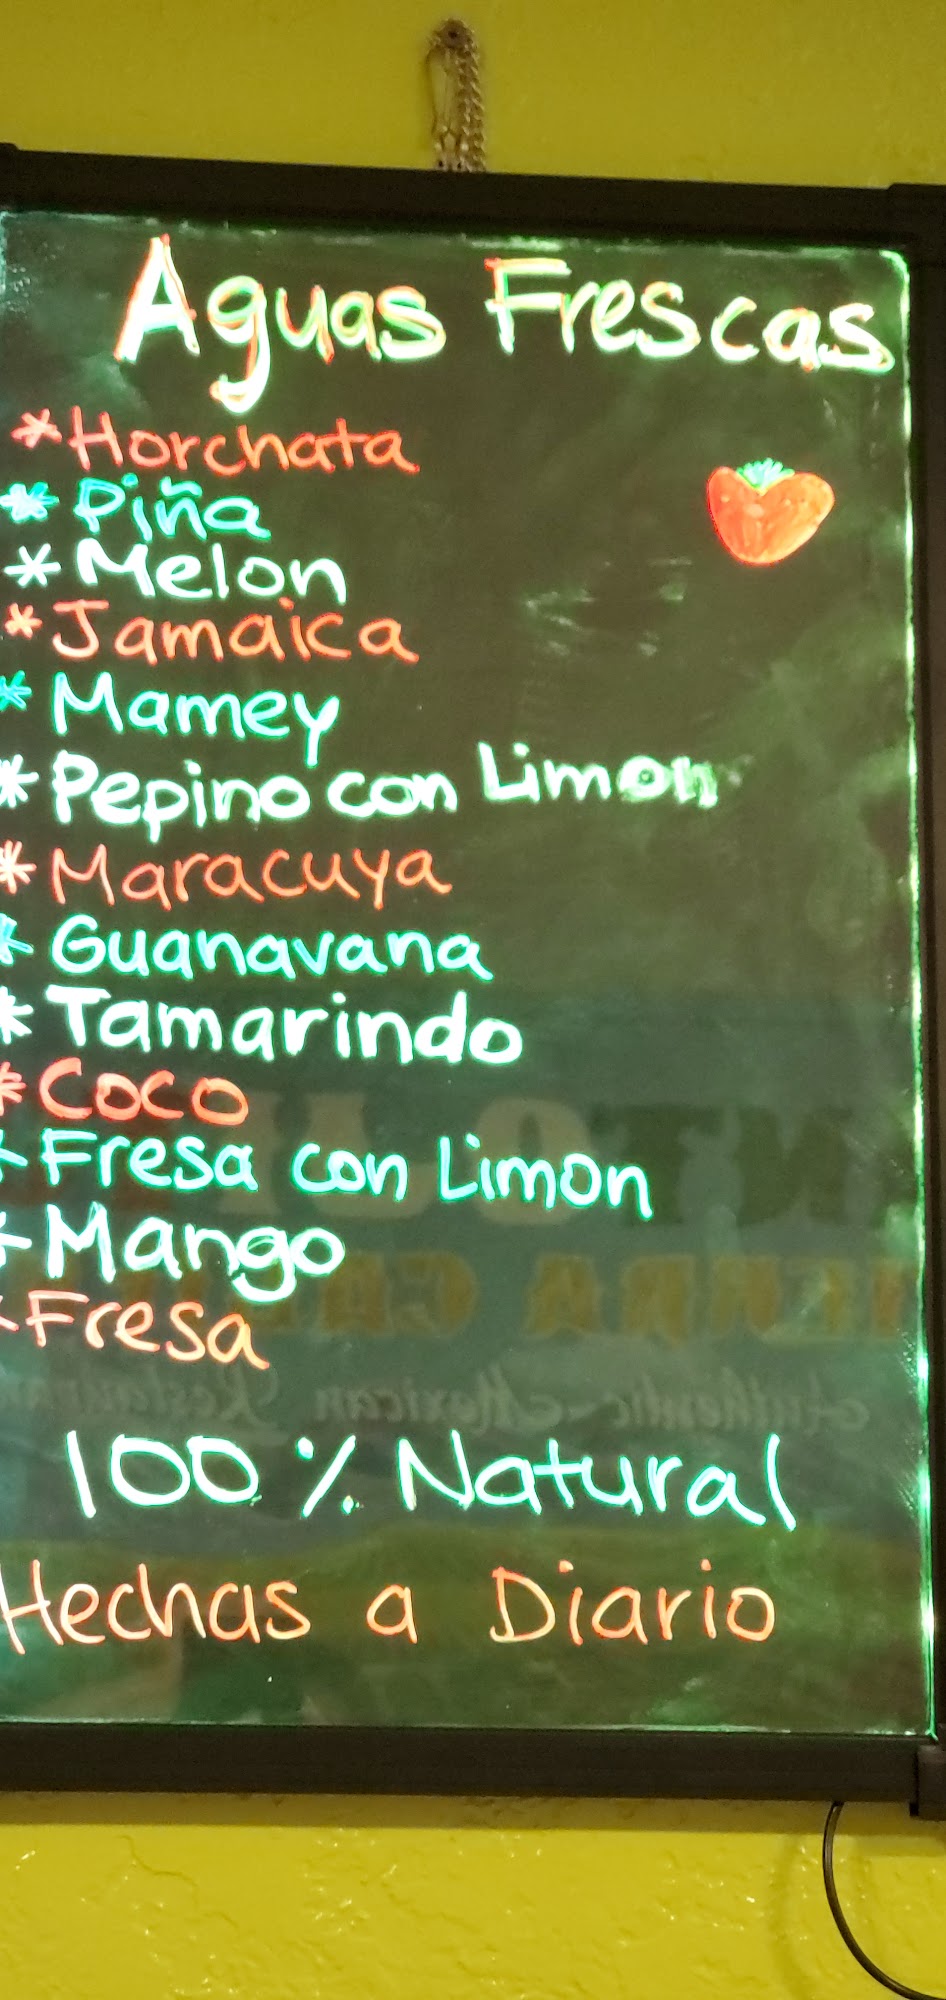 Aguas Frescas
*Horchata
*Piña
*Melon
*Jamaica
*Mamey
*Pepino con Limon
*Maracuya
*Guanavana
*Tamarindo
*Coco
*Fresa con Limon
*Mango
*Fresa
100% Natural
Hechas a Diario
Authentic Mexican Restaurant